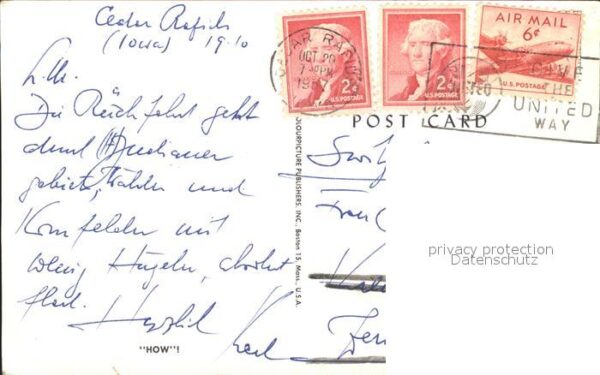 Cedar Rapids
(Iowa) 19.10
L. M.
Die Rückfahrt geht
durch Indianer
gebiete, Wälder und
Kornfelder mit
wenig Hügeln, absolut
flach.
Herzlich Karl
"HOW"!
COLOURPICTURE PUBLISHERS, INC., Boston 15, Mass., U.S.A.
CEDAR RAPIDS
OCT 20
7 PM
2¢
U.S. POSTAGE
2¢
U.S. POSTAGE
AIR MAIL
6¢
U.S. POSTAGE
GIVE
THE
UNITED
WAY
POST CARD
privacy protection
Datenschutz